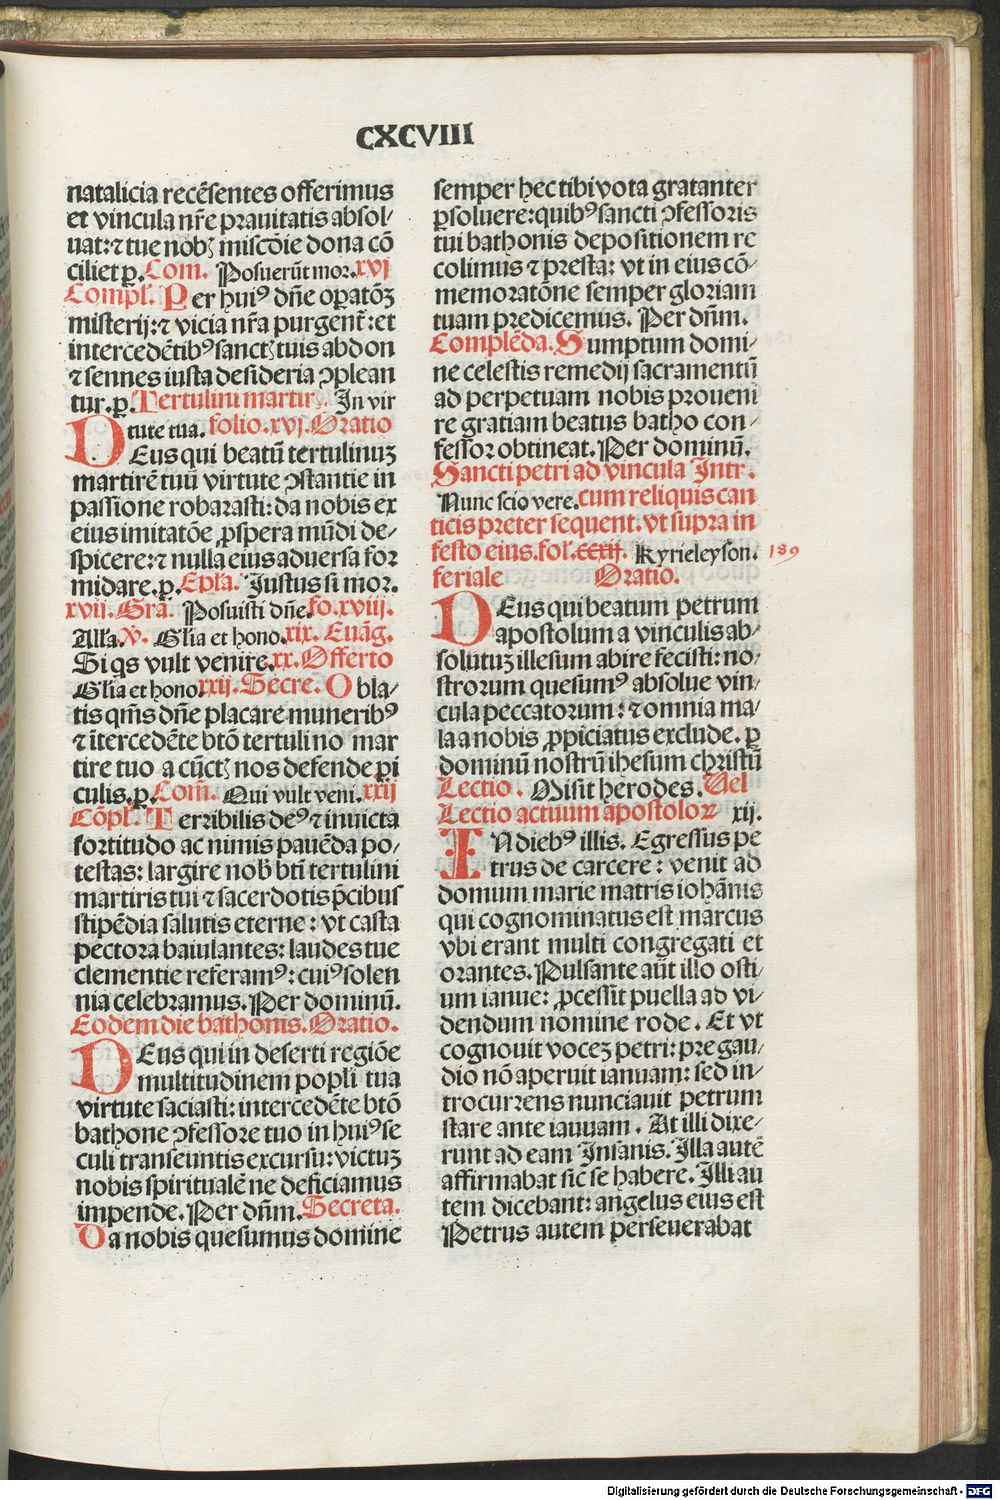 CXCVIII
natalicia recēsentes offerimus
et vincula nr̄e prauitatis absol/
uat: ⁊ tue nobꝫ miscōie dona cō
ciliet ꝑ. Com. Posuerūt mor. xvj
Compl̄. Per huiꝰ dn̄e oꝑatōꝫ
misterij: ⁊ vicia nr̄a purgent̄: et
intercedētibꝰ sanctꝫ tuis abdon
⁊ sennes iusta desideria ꝯplean
tur. ꝑ. Tertulini martir. In vir
tute tua. folio. xvj. Oratio
DEus qui beatū tertulinuꝫ
martirē tuū virtute ꝯstantie in
passione robarasti: da nobis ex
eius imitatōe ꝓspera mūdi de/
spicere: ⁊ nulla eius aduersa for
midare. ꝑ. Epl̄a. Justus si mor.
xvii. Gra. Posuisti dn̄e. fo. xviij.
All̄a. ꝟ. Gl̄ia et hono. xix. Euāg.
Si qs vult venire. xx. Offerto
Gl̄ia et hono. xxij. Secre. Obla/
tis qm̄s dn̄e placare muneribꝰ
⁊ ītercedēte btō tertulino mar
tire tuo a cūctꝫ nos defende ꝑi
culis. ꝑ. Com. Qui vult veni. xxij
Cōpl̄. Terribilis deꝰ ⁊ inuicta
fortitudo ac nimis pauēda po/
testas: largire nob̄ btī tertulini
martiris tui ⁊ sacerdotis p̄cibus
stipēdia salutis eterne: vt casta
pectora baiulantes: laudes tue
clementie referamꝰ: cuiꝰ solen
nia celebramus. Per dominū.
Eodem die bathonis. Oratio.
DEus qui in deserti regiōe
multitudinem popl̄i tua
virtute saciasti: intercedēte btō
bathone ꝯfessore tuo in huiꝰ se
culi transeuntis excursu: victuꝫ
nobis spiritualē ne deficiamus
impende. Per dn̄m. Secreta.
Da nobis quesumus domine
semper hec tibi vota gratanter
ꝑsoluere: quibꝰ sancti ꝯfessoris
tui bathonis depositionem re
colimus ⁊ presta: vt in eius cō/
memoratōne semper gloriam
tuam predicemus. Per dn̄m.
Complēda. Sumptum domi/
ne celestis remedij sacramentū
ad perpetuam nobis proueni
re gratiam beatus batho con/
fessor obtineat. Per dominū.
Sancti petri ad vincula Intr.
Nunc scio vere. cum reliquis can
ticis preter sequent. vt supra in
festo eius. fol. cxxij. Kyrieleyson. 189
feriale Oratio.
DEus qui beatum petrum
apostolum a vinculis ab/
solutuꝫ illesum abire fecisti: no/
strorum quesumꝰ absolue vin/
cula peccatorum: ⁊ omnia ma/
la a nobis ꝓpiciatus exclude. ꝑ
dominū nostrū ihesum christū
Lectio. Misit herodes. Vel
Lectio actuum apostoloꝝ xij.
IN diebꝰ illis. Egressus pe
trus de carcere: venit ad
domum marie matris iohānis
qui cognominatus est marcus
vbi erant multi congregati et
orantes. Pulsante aūt illo osti/
um ianue: ꝓcessit puella ad vi/
dendum nomine rode. Et vt
cognouit voceꝫ petri: pre gau/
dio nō aperuit ianuam: sed in/
trocurrens nunciauit petrum
stare ante iauuam. At illi dixe/
runt ad eam Insanis. Illa autē
affirmabat sic̄ se habere. Illi au
tem dicebant: angelus eius est
Petrus autem perseuerabat
Digitalisierung gefördert durch die Deutsche Forschungsgemeinschaft - DFG